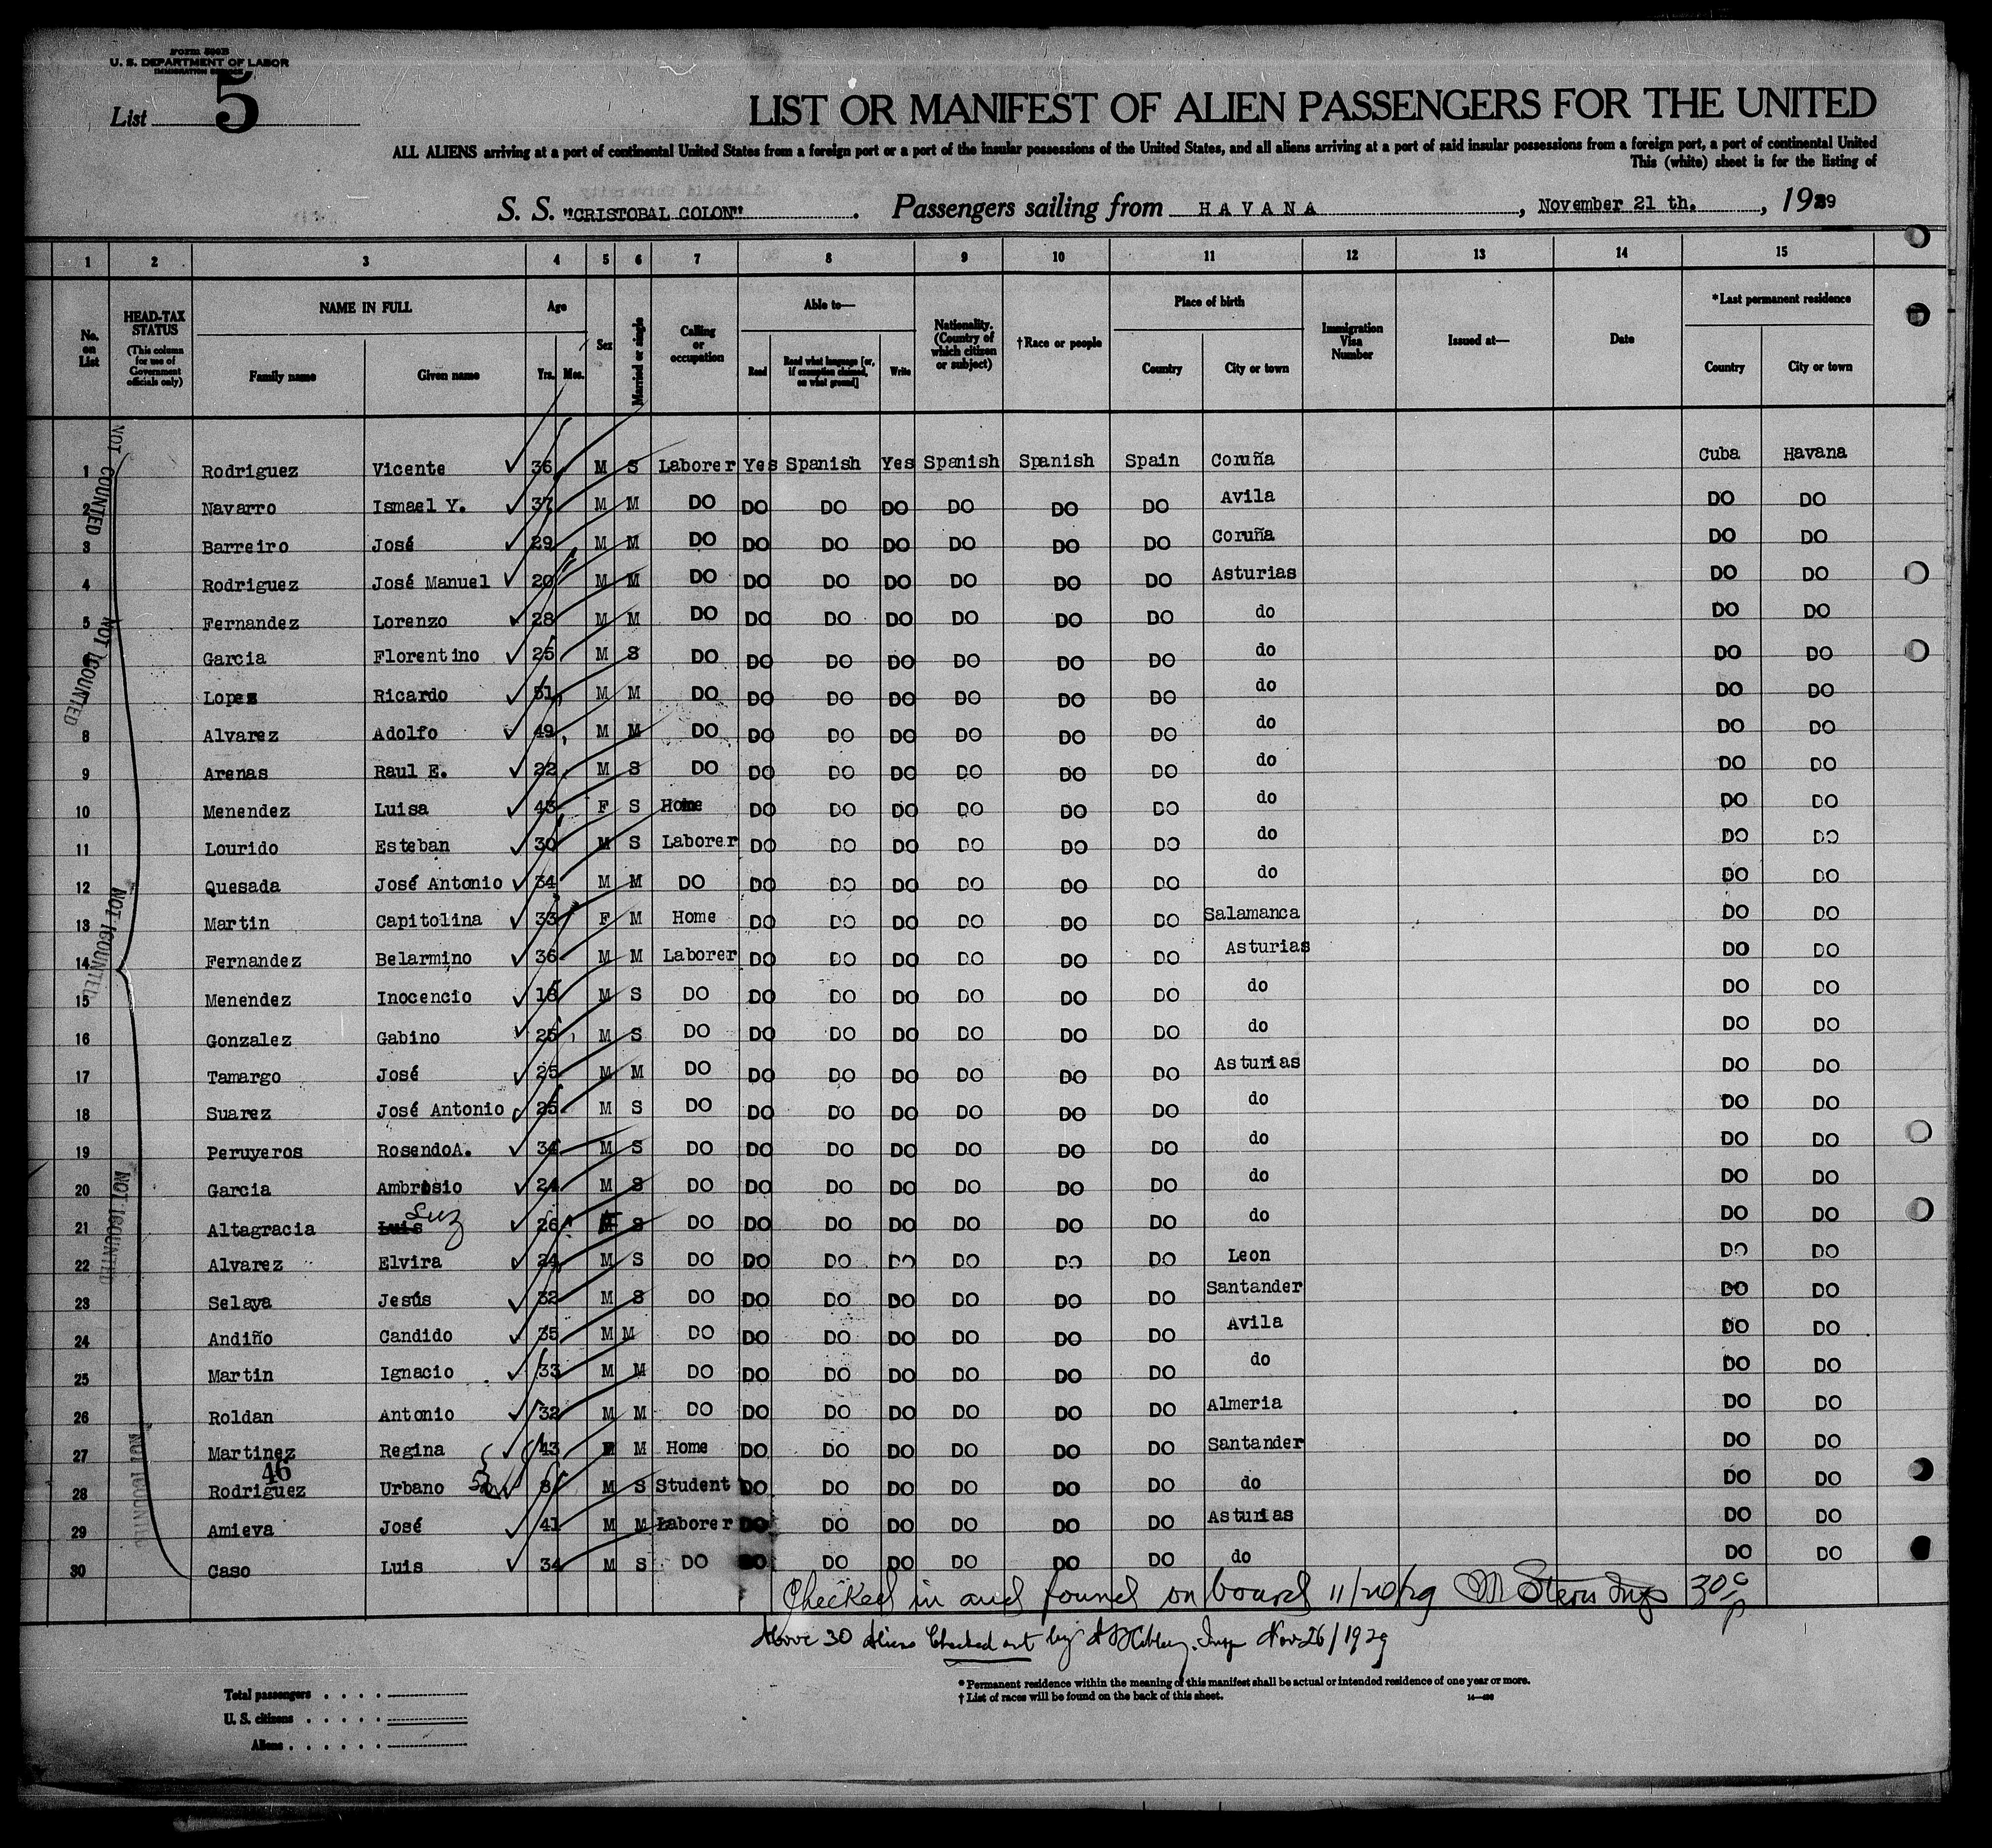 Form 500B
U. S. DEPARTMENT OF LABOR
IMMIGRATION SERVICE
List 5
LIST OR MANIFEST OF ALIEN PASSENGERS FOR THE UNITED
ALL ALIENS arriving at a port of continental United States from a foreign port or a port of the insular possessions of the United States, and all aliens arriving at a port of said insular possessions from a foreign port, a port of continental United
This (white) sheet is for the listing of
S. S. "CRISTOBAL COLON" . Passengers sailing from HAVANA , November 21 th. , 1929
1 2 3 4 5 6 7 8 9 10 11 12 13 14 15
No. on List
HEAD-TAX STATUS (This column for use of Government officials only)
NAME IN FULL Family name Given name
Age Yrs. Mos.
Sex
Married or single
Calling or occupation
Able to— Read Read what language [or, if exemption claimed, on what ground] Write
Nationality. (Country of which citizen or subject)
†Race or people
Place of birth Country City or town
Immigration Visa Number
Issued at—
Date
*Last permanent residence Country City or town
NOT COUNTED
1 Rodriguez Vicente 36 M S Laborer Yes Spanish Yes Spanish Spanish Spain Coruña Cuba Havana
2 Navarro Ismael Y. 37 M M DO DO DO DO DO DO DO Avila DO DO
3 Barreiro José 29 M M DO DO DO DO DO DO DO Coruña DO DO
4 Rodriguez José Manuel 20 M M DO DO DO DO DO DO DO Asturias DO DO
5 Fernandez Lorenzo 28 M M DO DO DO DO DO DO DO do DO DO
NOT COUNTED
Garcia Florentino 25 M S DO DO DO DO DO DO DO do DO DO
Lopez Ricardo 51 M M DO DO DO DO DO DO DO do DO DO
8 Alvarez Adolfo 49 M M DO DO DO DO DO DO DO do DO DO
9 Arenas Raul E. 22 M S DO DO DO DO DO DO DO do DO DO
10 Menendez Luisa 43 F S Home DO DO DO DO DO DO do DO DO
11 Lourido Esteban 30 M S Laborer DO DO DO DO DO DO do DO DO
12 Quesada José Antonio 34 M M DO DO DO DO DO DO DO do DO DO
NOT COUNTED
13 Martin Capitolina 33 F M Home DO DO DO DO DO DO Salamanca DO DO
14 Fernandez Belarmino 36 M M Laborer DO DO DO DO DO DO Asturias DO DO
15 Menendez Inocencio 18 M S DO DO DO DO DO DO DO do DO DO
16 Gonzalez Gabino 25 M S DO DO DO DO DO DO DO do DO DO
17 Tamargo José 25 M M DO DO DO DO DO DO DO Asturias DO DO
18 Suarez José Antonio 25 M S DO DO DO DO DO DO DO do DO DO
19 Peruyeros RosendoA. 34 M S DO DO DO DO DO DO DO do DO DO
NOT COUNTED
20 Garcia Ambrosio 24 M S DO DO DO DO DO DO DO do DO DO
21 Altagracia Luis Luz 26 F S DO DO DO DO DO DO DO do DO DO
22 Alvarez Elvira 24 M S DO DO DO DO DO DO DO Leon DO DO
23 Selaya Jesús 32 M S DO DO DO DO DO DO DO Santander DO DO
24 Andiño Candido 35 M M DO DO DO DO DO DO DO Avila DO DO
25 Martin Ignacio 33 M M DO DO DO DO DO DO DO do DO DO
26 Roldan Antonio 32 M M DO DO DO DO DO DO DO Almeria DO DO
NOT COUNTED
27 Martinez Regina 43 M Home DO DO DO DO DO DO Santander DO DO
46
28 Rodriguez Urbano 8 M S Student DO DO DO DO DO DO do DO DO
29 Amieva José 41 M M Laborer DO DO DO DO DO DO Asturias DO DO
30 Caso Luis 34 M S DO DO DO DO DO DO DO do DO DO
Checked in and found on board 11/20/29 M Stern Insp
Above 30 Aliens Checked out by Insp Nov 26/1929
* Permanent residence within the meaning of this manifest shall be actual or intended residence of one year or more.
† List of races will be found on the back of this sheet.
Total passengers . . . .
U. S. citizens . . . . .
Aliens . . . . . .